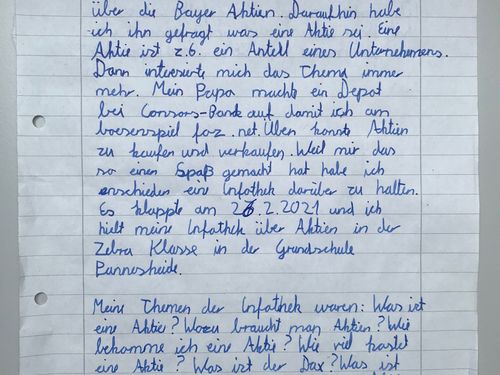 über die Bayer Aktien. Daraufhin habe
ich ihn gefragt was eine Aktie sei. Eine
Aktie ist z.b. ein Anteil eines Unternehmens.
Dann interisirte mich das Thema immer
mehr. Mein Papa machte ein Depot
bei Consors-Bank auf damit ich am
boersenspiel faz.net. Üben konnte Aktien
zu kaufen und verkaufen. Weil mir das
so einen Spaß gemacht hat habe ich
enschieden eine Infothek darüber zu halten.
Es klappte am 26.2.2021 und ich
hielt meine Infothek über Aktien in der
Zebra Klasse in der Grundschule
Pannesheide.
Meine Themen der Infothek waren: Was ist
eine Aktie? Wozu braucht man Aktien? Wie
bekomme ich eine Aktie? Wie viel kostet
eine Aktie? Was ist der Dax? Was ist